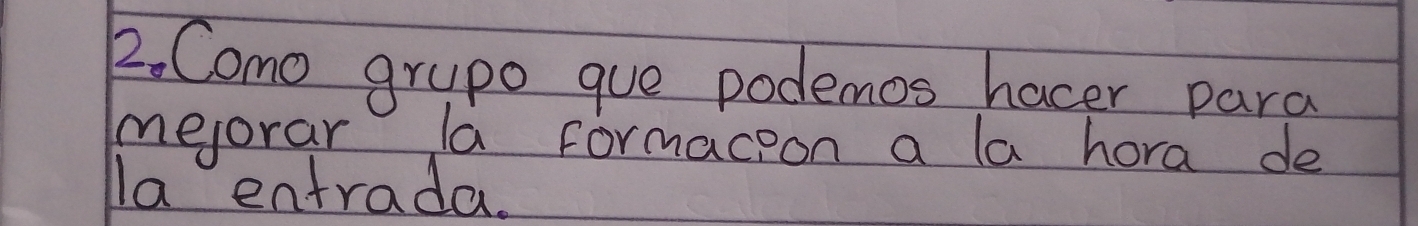 2. Como grupo que podemos hacer para
mejorar la formacion a la hora de
la entrada.